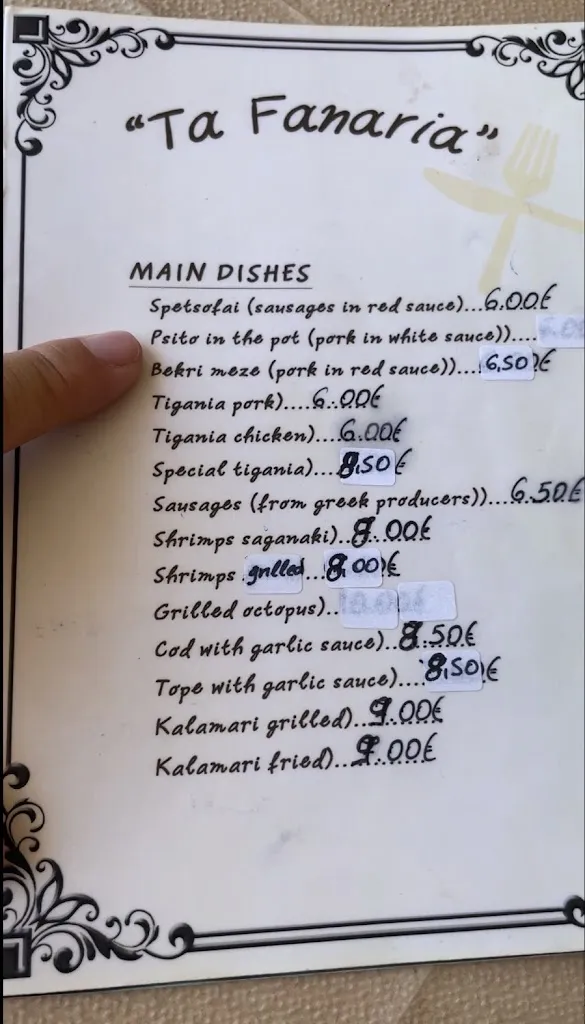 "Ta Fanaria"
MAIN DISHES
Spetsofai (sausages in red sauce)...6.00€
Psito in the pot (pork in white sauce))....
Bekri meze (pork in red sauce))...6,50€
Tigania pork)....6.00€
Tigania chicken)....6.00€
Special tigania)...8,50€
Sausages (from greek producers))...6.50€
Shrimps saganaki)..8.00€
Shrimps grilled...8,00€
Grilled octopus)..
Cod with garlic sauce)..8.50€
Tope with garlic sauce)....8,50€
Kalamari grilled)..9.00€
Kalamari fried)..9.00€